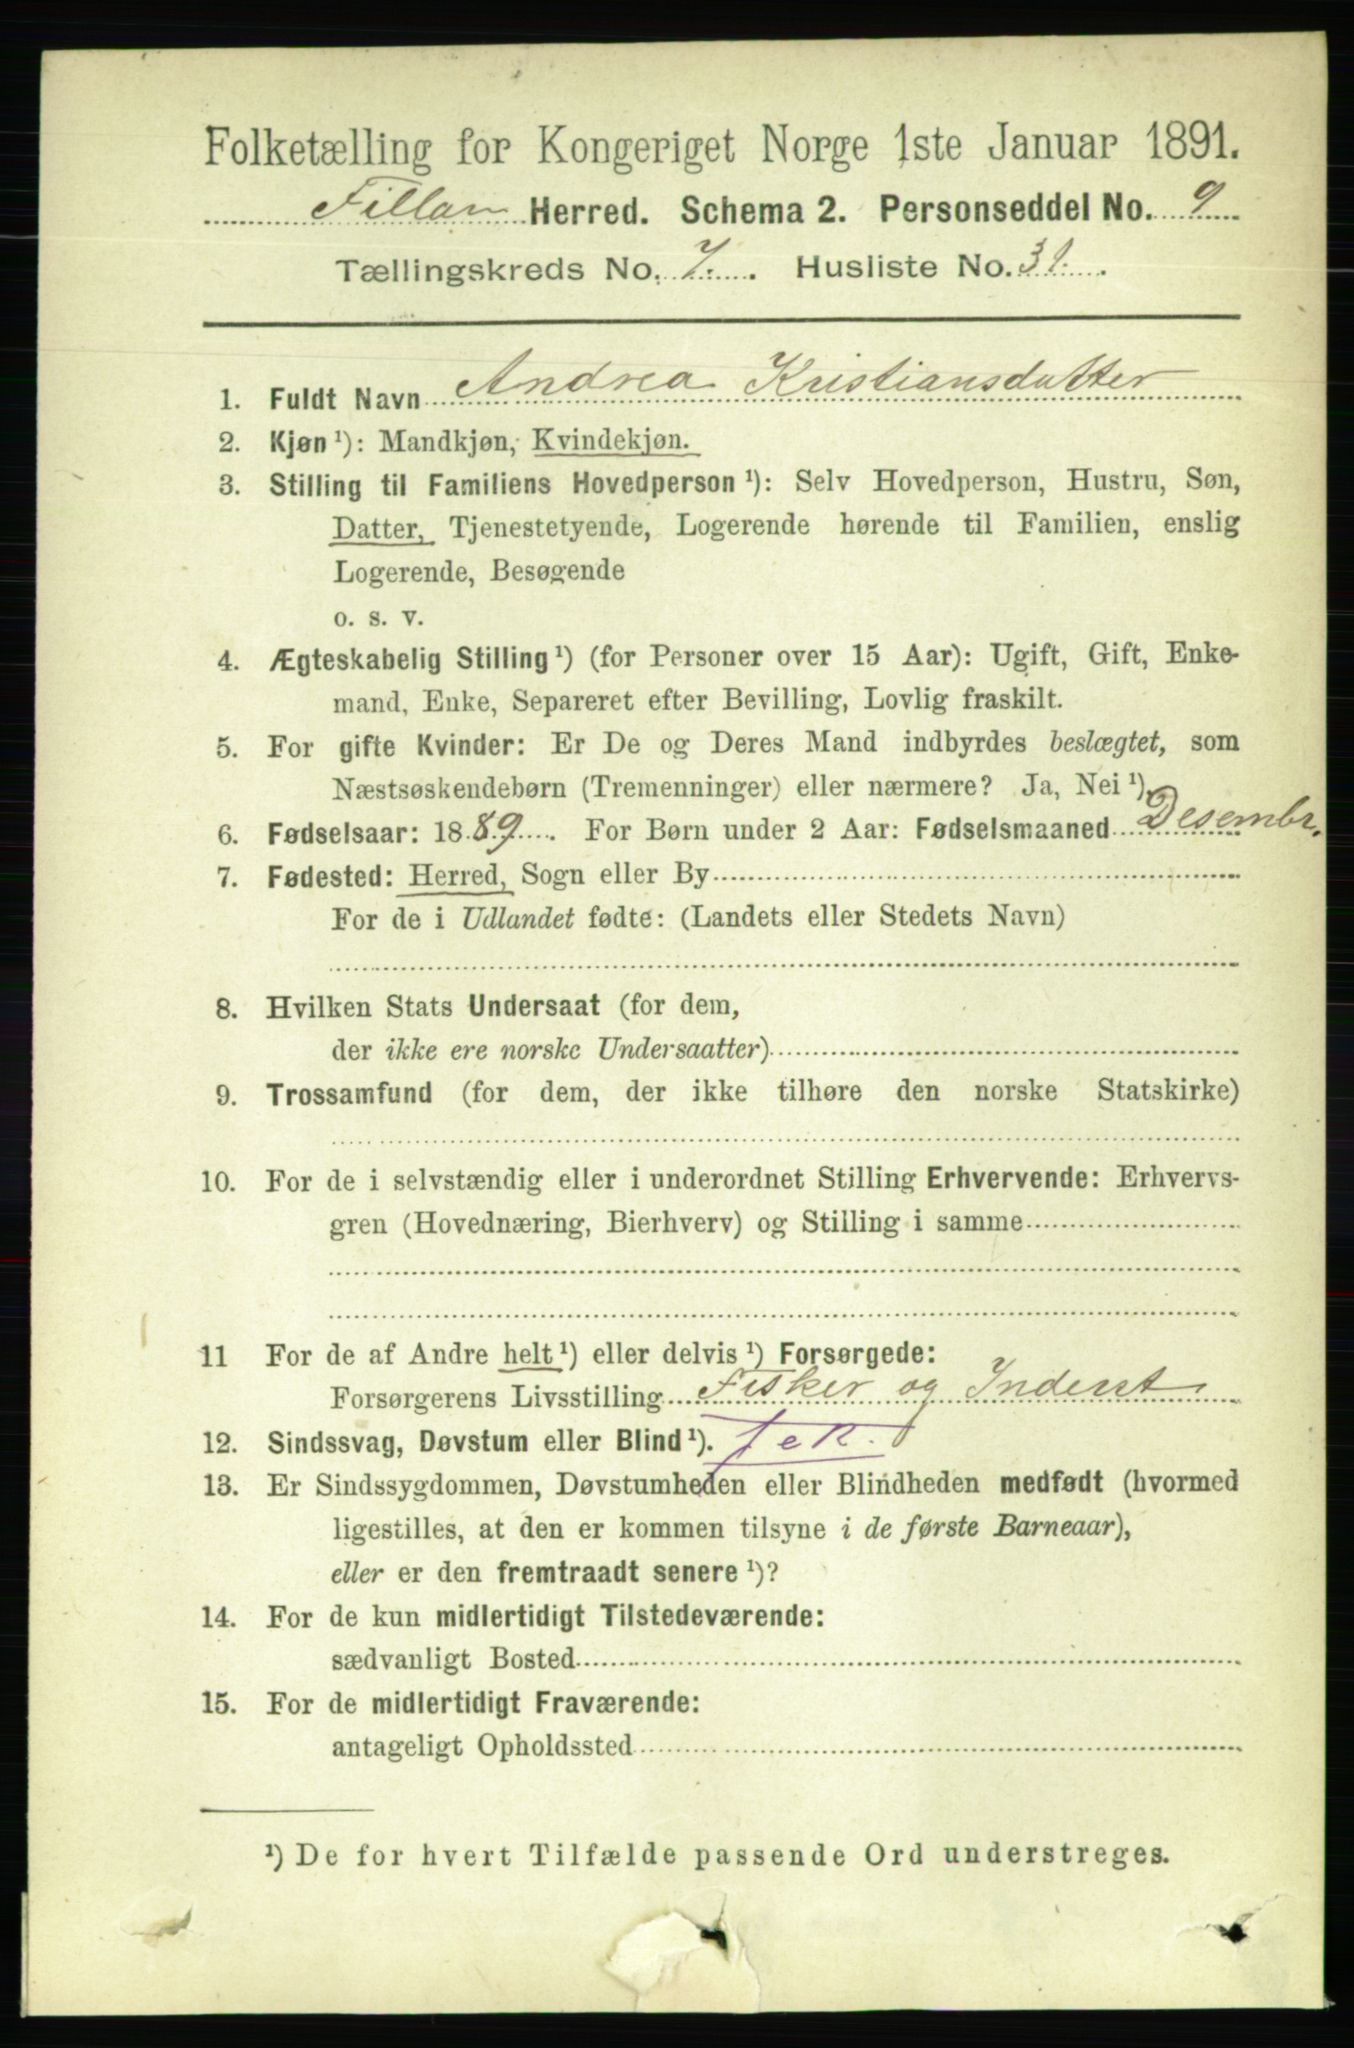 Folketælling for Kongeriget Norge 1ste Januar 1891.
Fillan Herred. Schema 2. Personseddel No. 9
Tællingskreds No. 7. Husliste No. 31.
1. Fuldt Navn Andrea Kristiansdatter
2. Kjøn ¹): Mandkjøn, Kvindekjøn.
3. Stilling til Familiens Hovedperson ¹): Selv Hovedperson, Hustru, Søn,
Datter, Tjenestetyende, Logerende hørende til Familien, enslig
Logerende, Besøgende
o. s. v.
4. Ægteskabelig Stilling ¹) (for Personer over 15 Aar): Ugift, Gift, Enke-
mand, Enke, Separeret efter Bevilling, Lovlig fraskilt.
5. For gifte Kvinder: Er De og Deres Mand indbyrdes beslægtet, som
Næstsøskendebørn (Tremenninger) eller nærmere? Ja, Nei ¹).
6. Fødselsaar: 1889. For Børn under 2 Aar: Fødselsmaaned Desembr.
7. Fødested: Herred, Sogn eller By
For de i Udlandet fødte: (Landets eller Stedets Navn)
8. Hvilken Stats Undersaat (for dem,
der ikke ere norske Undersaatter)
9. Trossamfund (for dem, der ikke tilhøre den norske Statskirke)
10. For de i selvstændig eller i underordnet Stilling Erhvervende: Erhvervs-
gren (Hovednæring, Bierhverv) og Stilling i samme
11 For de af Andre helt ¹) eller delvis ¹) Forsørgede:
Forsørgerens Livsstilling Fisker og Inderst
12. Sindssvag, Døvstum eller Blind ¹).
13. Er Sindssygdommen, Døvstumheden eller Blindheden medfødt (hvormed
ligestilles, at den er kommen tilsyne i de første Barneaar),
eller er den fremtraadt senere ¹)?
14. For de kun midlertidigt Tilstedeværende:
sædvanligt Bosted
15. For de midlertidigt Fraværende:
antageligt Opholdssted
¹) De for hvert Tilfælde passende Ord understreges.